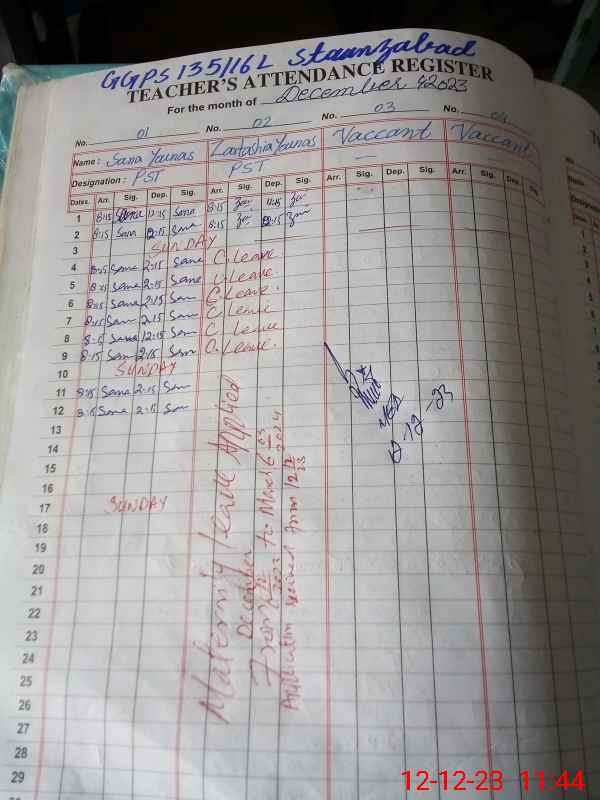 GGPS 135/16L Staunzabad
TEACHER'S ATTENDANCE REGISTER
For the month of December 2023
No. 01 No. 02 No. 03 No. 04
Name: Sana Younas Zartashia Younas Vaccant Vaccant
Designation: PST PST
Dates. Arr. Sig. Dep. Sig. Arr. Sig. Dep. Sig. Arr. Sig. Dep. Sig. Arr. Sig. Dep. Sig.
1 8:15 Sana 12:15 Sana 8:15 12:15
2 8:15 Sana 2:15 Sana 8:15 2:15
3 SUNDAY
4 8:15 Sana 2:15 Sana C. Leave
5 8:15 Sana 2:15 Sana C. Leave
6 8:15 Sana 2:15 Sana C. Leave
7 8:15 Sana 2:15 Sana C. Leave
8 8:15 Sana 12:15 Sana C. Leave
9 8:15 Sana 2:15 Sana C. Leave
10 SUNDAY
11 8:15 Sana 2:15 Sana
12 8:15 Sana 2:15 Sana
13
14
15
16
17 SUNDAY
18
19
20
21
22
23
24
25
26
27
28
29
Maternity Leave Applied
From December 2023 to March 2024
Application received from
12-12-23
12-12-23 11:44